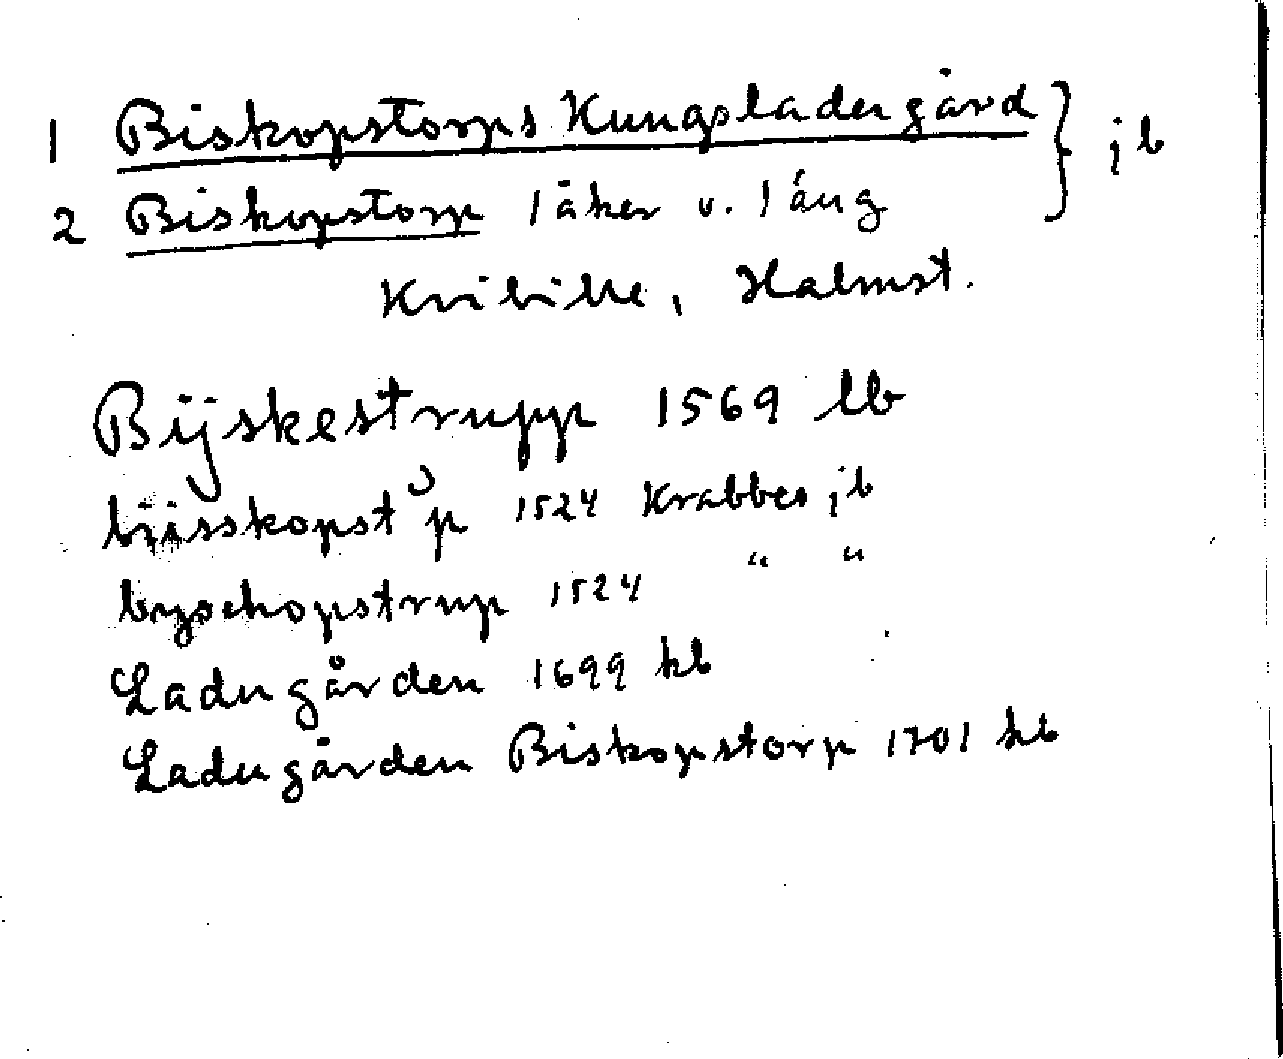 1 Biskopstorps Kungsladugård } jb
2 Biskopstorp 1 åker o. 1 äng
Kvibille, Halmst.
Bijskestrupp 1569 lb
bijsskopstup 1524 Krabbes jb
byschopstrup 1524 " "
Ladugården 1699 kb
Ladugården Biskopstorp 1701 kb